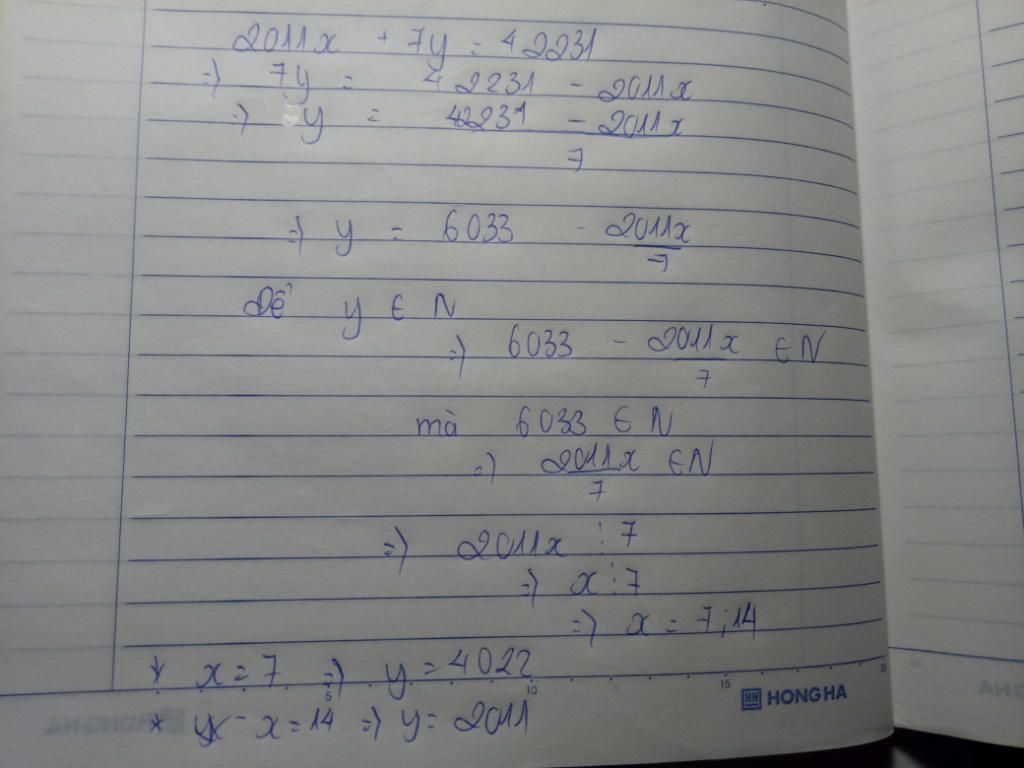 2011x + 7y = 42231
=) 7y = 42231 - 2011x
=) y = 42231 - 2011x
7
=) y = 6033 - 2011x
7
Để y ∈ N
=) 6033 - 2011x ∈ N
7
mà 6033 ∈ N
=) 2011x ∈ N
7
=) 2011x ⋮ 7
=) x ⋮ 7
=) x = 7; 14
* x = 7 =) y = 4022
* x = 14 =) y = 2011
5 10 15 20
HONG HA